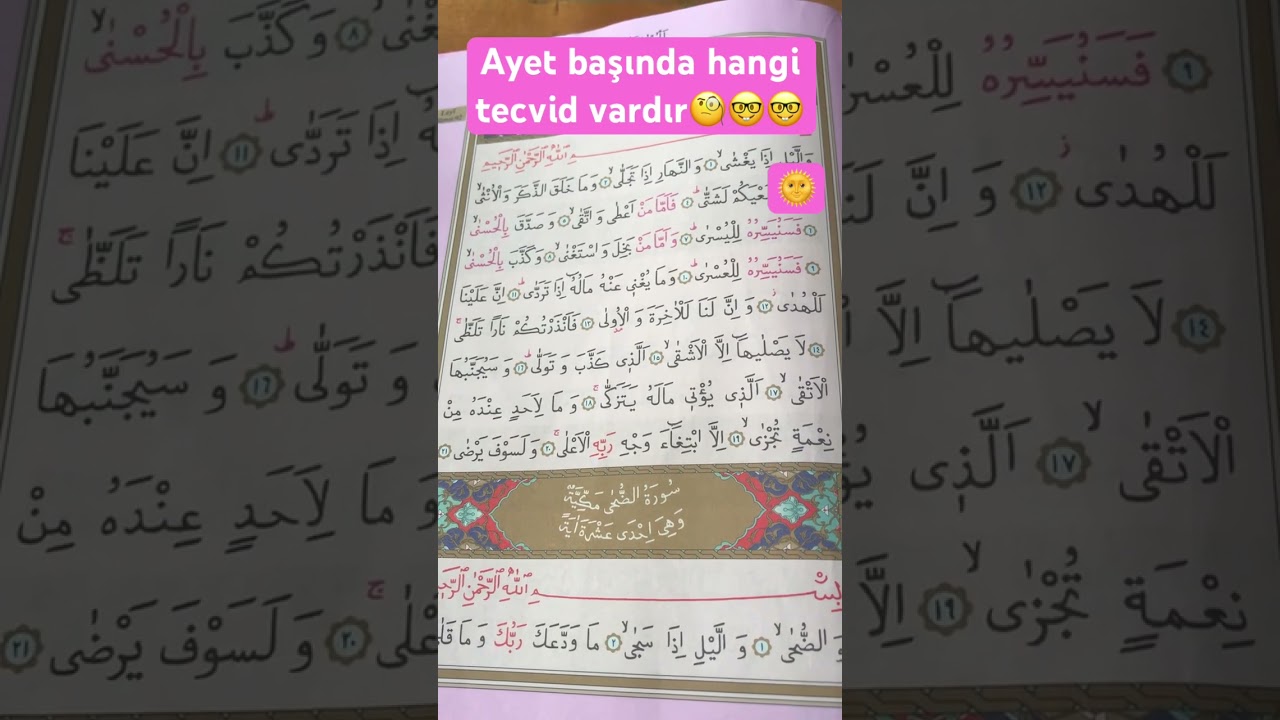 Ayet başında hangi
tecvid vardır🧐🤓🤓
ـمِ اللّٰهِ الرَّحْمٰنِ الرَّحِيمِ
وَالَّيْلِ اِذَا يَغْشٰىۙ ﴿١﴾ وَالنَّهَارِ اِذَا تَجَلّٰىۙ ﴿٢﴾ وَمَا خَلَقَ الذَّكَرَ وَالْاُنْثٰىۙ
لَشَتّٰىۜ ﴿٤﴾ فَاَمَّا مَنْ اَعْطٰى وَاتَّقٰىۙ ﴿٥﴾ وَصَدَّقَ بِالْحُسْنٰىۙ
﴿٦﴾ فَسَنُيَسِّرُهُ لِلْيُسْرٰىۜ ﴿٧﴾ وَاَمَّا مَنْ بَخِلَ وَاسْتَغْنٰىۙ ﴿٨﴾ وَكَذَّبَ بِالْحُسْنٰىۙ
﴿٩﴾ فَسَنُيَسِّرُهُ لِلْعُسْرٰىۜ ﴿١٠﴾ وَمَا يُغْنٖى عَنْهُ مَالُهُٓ اِذَا تَرَدّٰىۜ ﴿١١﴾ اِنَّ عَلَيْنَا
لَلْهُدٰىؗ ﴿١٢﴾ وَاِنَّ لَنَا لَلْاٰخِرَةَ وَالْاُولٰى ﴿١٣﴾ فَاَنْذَرْتُكُمْ نَارًا تَلَظّٰىۚ
﴿١٤﴾ لَا يَصْلٰيهَٓا اِلَّا الْاَشْقٰىۙ ﴿١٥﴾ اَلَّذٖى كَذَّبَ وَتَوَلّٰىۜ ﴿١٦﴾ وَسَيُجَنَّبُهَا
الْاَتْقٰىۙ ﴿١٧﴾ اَلَّذٖى يُؤْتٖى مَالَهُ يَتَزَكّٰىۚ ﴿١٨﴾ وَمَا لِاَحَدٍ عِنْدَهُ مِنْ
نِعْمَةٍ تُجْزٰىۙ ﴿١٩﴾ اِلَّا ابْتِغَٓاءَ وَجْهِ رَبِّهِ الْاَعْلٰىۚ ﴿٢٠﴾ وَلَسَوْفَ يَرْضٰى ﴿٢١﴾
سُورَةُ الضُّحٰى مَكِّيَّةٌ
وَهِىَ اِحْدٰى عَشْرَةَ اٰيَةً
بِسْـمِ اللّٰهِ الرَّحْمٰنِ
وَالضُّحٰىۙ ﴿١﴾ وَالَّيْلِ اِذَا سَجٰىۙ ﴿٢﴾ مَا وَدَّعَكَ رَبُّكَ وَمَا